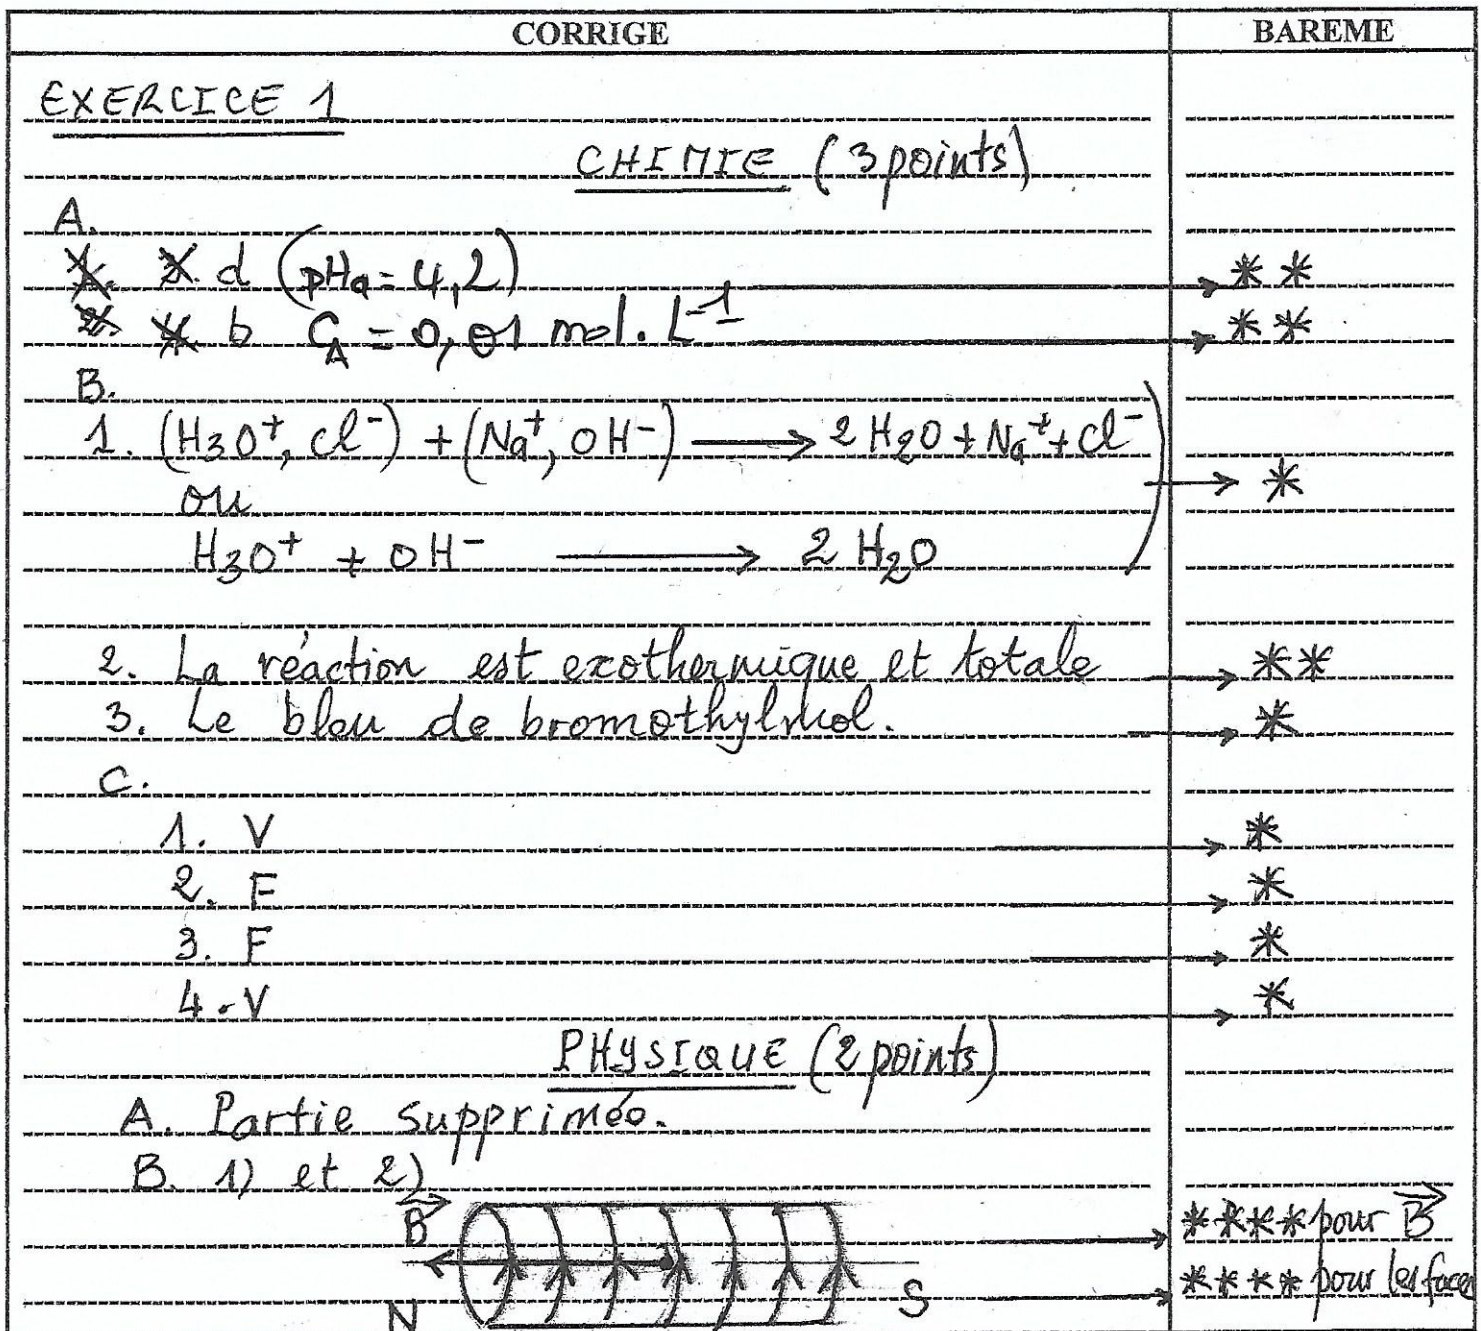 CORRIGE BAREME
EXERCICE 1
CHIMIE (3 points)
A.
d (pHa = 4,2) → **
b CA = 0,01 mol. L⁻¹ → **
B.
1. (H3O⁺, Cl⁻) + (Na⁺, OH⁻) → 2 H2O + Na⁺ + Cl⁻
→ *
ou
H3O⁺ + OH⁻ → 2 H2O
2. La réaction est exothermique et totale → **
3. Le bleu de bromothylmol. → *
C.
1. V → *
2. F → *
3. F → *
4. V → *
PHYSIQUE (2 points)
A. Partie supprimée.
B. 1) et 2)
B → **** pour B
N S → **** pour les faces